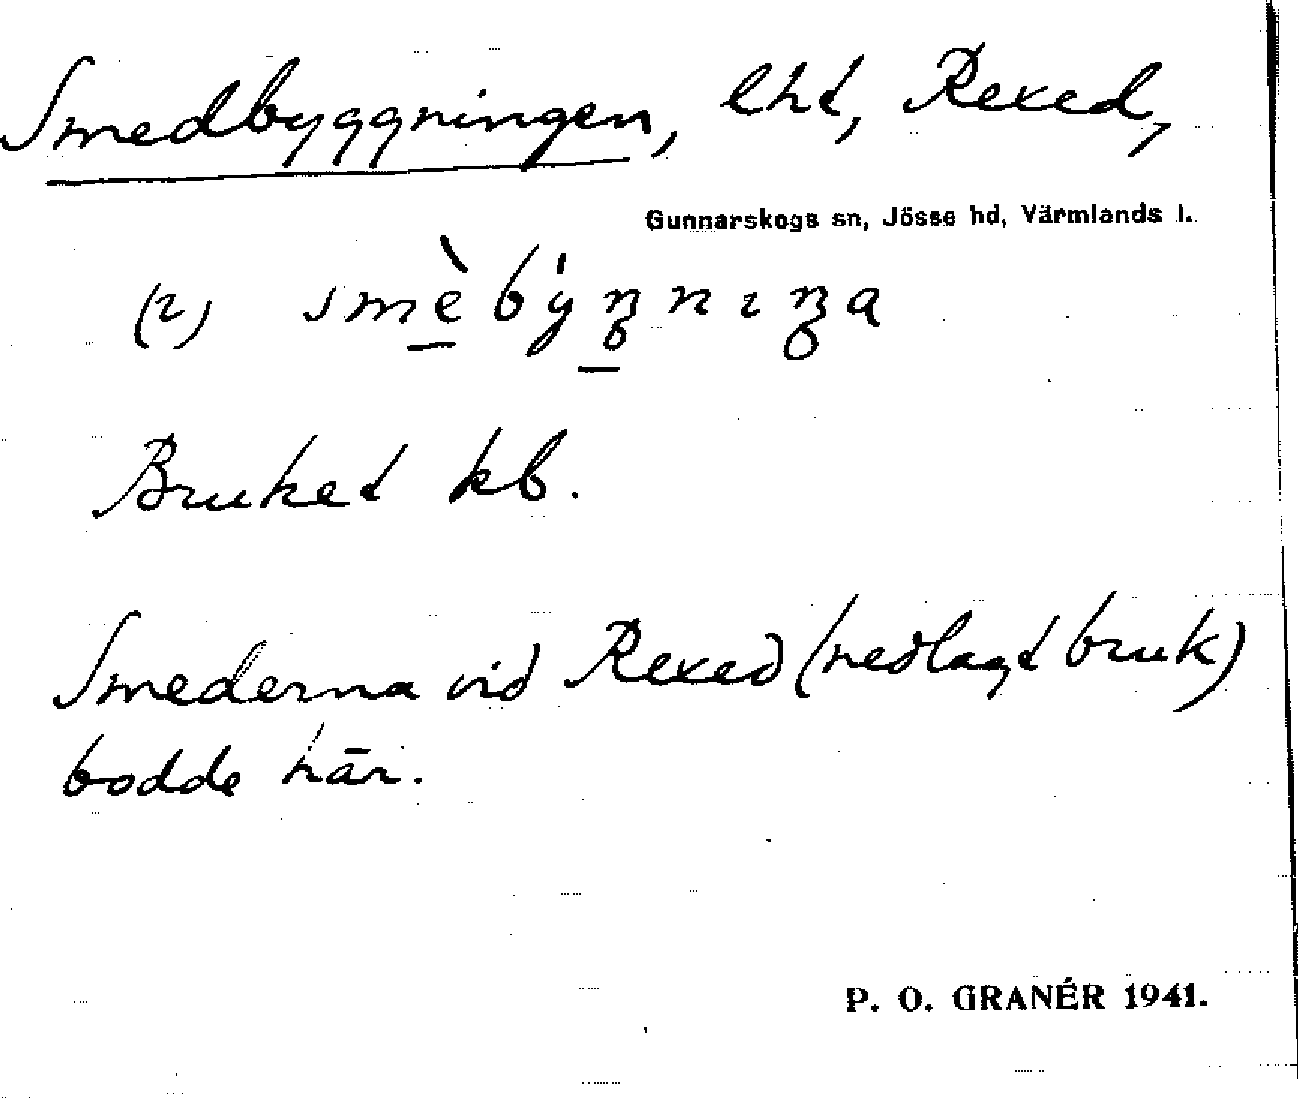 Smedbyggningen, lht, Rexed,
Gunnarskogs sn, Jösse hd, Värmlands l.
(2) smèbýŋnıŋa
Bruket kb.
Smederna vid Rexed (nedlagt bruk)
bodde här.
P. O. GRANÉR 1941.